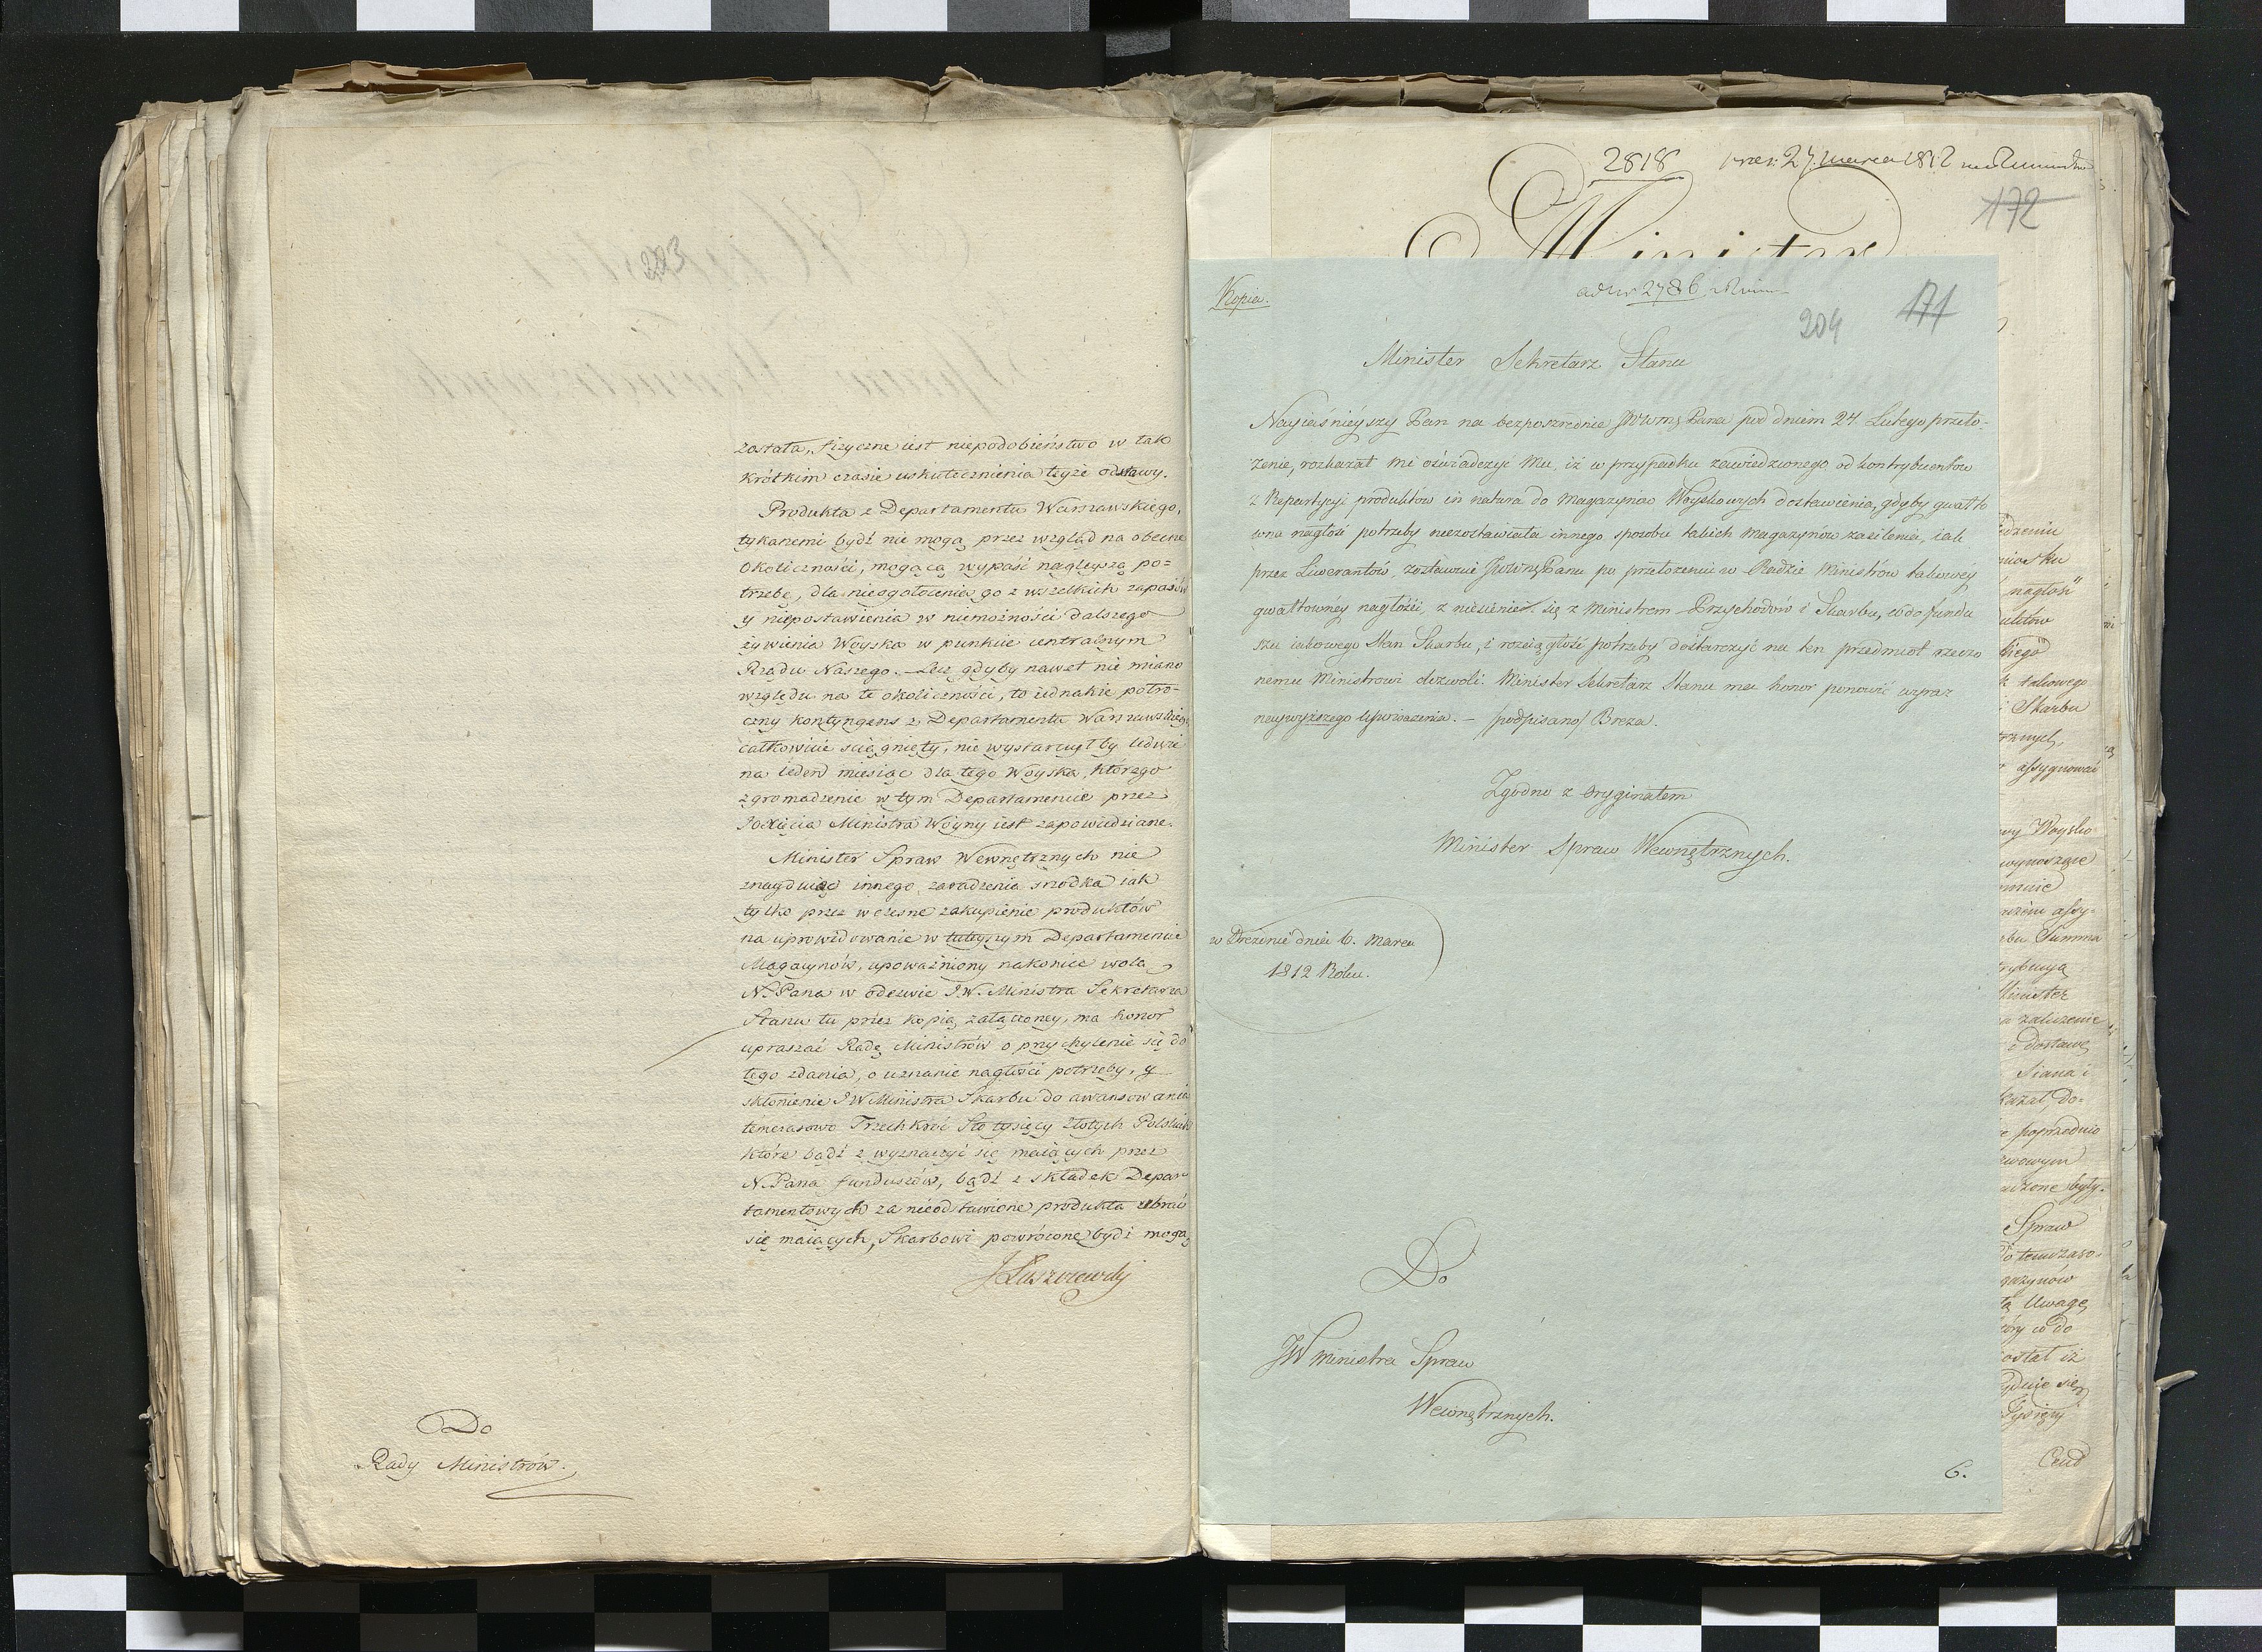 203
zostało, fizyczne iest niepodobieństwo w tak
krótkim czasie uskutecznienia teyże odstawy.
Produkta z Departamentu Warszawskiego,
tykanemi bydź nie mogą przez wzgląd na obecne
okoliczności, mogącą wypaść nagleyszą po=
trzebę, dla nieogołocenia go z wszelkich zapasów
y niepostawienia w niemożności dalszego
żywienia Woyska w punkcie centralnym
Rządu Naszego. Lecz gdyby nawet nie miano
względu na te okoliczności, to iednakże potro-
czny kontyngens z Departamentu Warszawskiego
całkowicie ściągnięty, nie wystarczył by ledwie
na ieden miesiąc dla tego Woyska, którego
zgromadzenie w tym Departamencie przez
JOXięcia Ministra Woyny iest zapowiedziane.
Minister Spraw Wewnętrznych nie
znayduiąc innego zaradzenia srodka iak
tylko przez wczesne zakupienie produktów
na uprowidowanie w tuteyszym Departamencie
Magazynów, upoważniony nakoniec wolą
N. Pana w odezwie J.W. Ministra Sekretarza
Stanu tu przez kopią załączoney, ma honor
upraszać Radę Ministrów o przychylenie się do
tego zdania, o uznanie nagłości potrzeby, y
skłonienie JW Ministra Skarbu do awansowania
temczasowo Trzech kroć Sto tysięcy Złotych Polskich
które bądź z wyznaczyć się maiących przez
N. Pana funduszów, bądź z składek Depar
tamentowych za nieodstawione produkta zebrać
się maiących, Skarbowi powrócone bydź mogą
J Łuszczewski
Do
Rady Ministrów.
2818 27 marca 1812
172
Minister
Kopia.
ad Nr 2786
204 171
Minister Sekretarz Stanu
Nayiaśnieyszy Pan na bezpośrednie JWWmę Pana pod dniem 24 Lutego przeło-
żenie, rozkazał mi oświadczyć Mu, iż w przypadku zawiedzionego od kontrybuentów
z Repartycyi produktów in natura do Magazynów Woyskowych dostawienia, gdyby gwałto
wna nagłość potrzeby niezostawiała innego sposobu takich Magazynów zasilenia, iak
przez Liwerantów, zostawuie JWWmę Panu po przełożeniu w Radzie Ministrów takowey
gwałtowney nagłości, znieść się z Ministrem Przychodów i Skarbu, co do fundu
szu iakowego Stan Skarbu, i rozciągłość potrzeby dostarczyć na ten przedmiot rzeczo
nemu Ministrowi dozwoli. Minister Sekretarz Stanu ma honor ponowić wyraz
naywyższego Uszanowania. – /podpisano/ Breza.
Zgodno z Oryginałem
Minister Spraw Wewnętrznych.
w Dreźnie dnia 6. Marca
1812 Roku.
Do
JW Ministra Spraw
Wewnętrznych.
6.
nagłość
takowego
Skarbu
assygnować
wynoszące
Summa
Minister
Siana i
poprzednio
Spraw
Uwagę
Cend